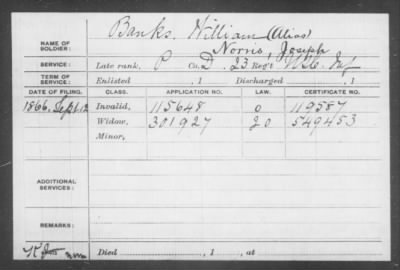 Banks, William (Alias)
NAME OF SOLDIER: Norris, Joseph
SERVICE: Late rank, P Co. D, 23 Reg't Inf
TERM OF SERVICE: Enlisted , 1 Discharged , 1
DATE OF FILING. CLASS. APPLICATION NO. LAW. CERTIFICATE NO.
1866, Sept 12 Invalid, 115648 0 119587
Widow, 301927 20 549453
Minor,
ADDITIONAL SERVICES:
REMARKS:
Died , 1 , at